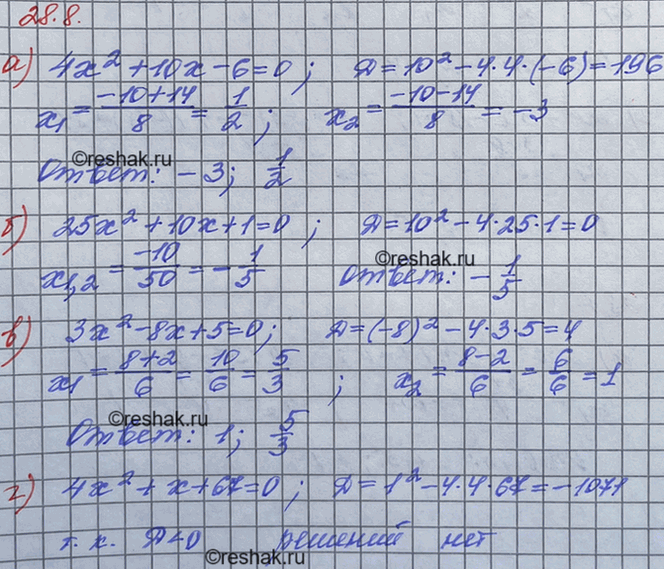 28.8.
а) 4x² + 10x - 6 = 0; D = 10² - 4·4·(-6) = 196
x₁ = (-10+14)/8 = 1/2; x₂ = (-10-14)/8 = -3
©reshak.ru
Ответ: -3; 1/2
б) 25x² + 10x + 1 = 0; D = 10² - 4·25·1 = 0
©reshak.ru
x₁,₂ = -10/50 = -1/5 Ответ: -1/5
в) 3x² - 8x + 5 = 0; D = (-8)² - 4·3·5 = 4
x₁ = (8+2)/6 = 10/6 = 5/3; x₂ = (8-2)/6 = 6/6 = 1
©reshak.ru
Ответ: 1; 5/3
г) 4x² + x + 67 = 0; D = 1² - 4·4·67 = -1071
т.к. D<0 решений нет
©reshak.ru